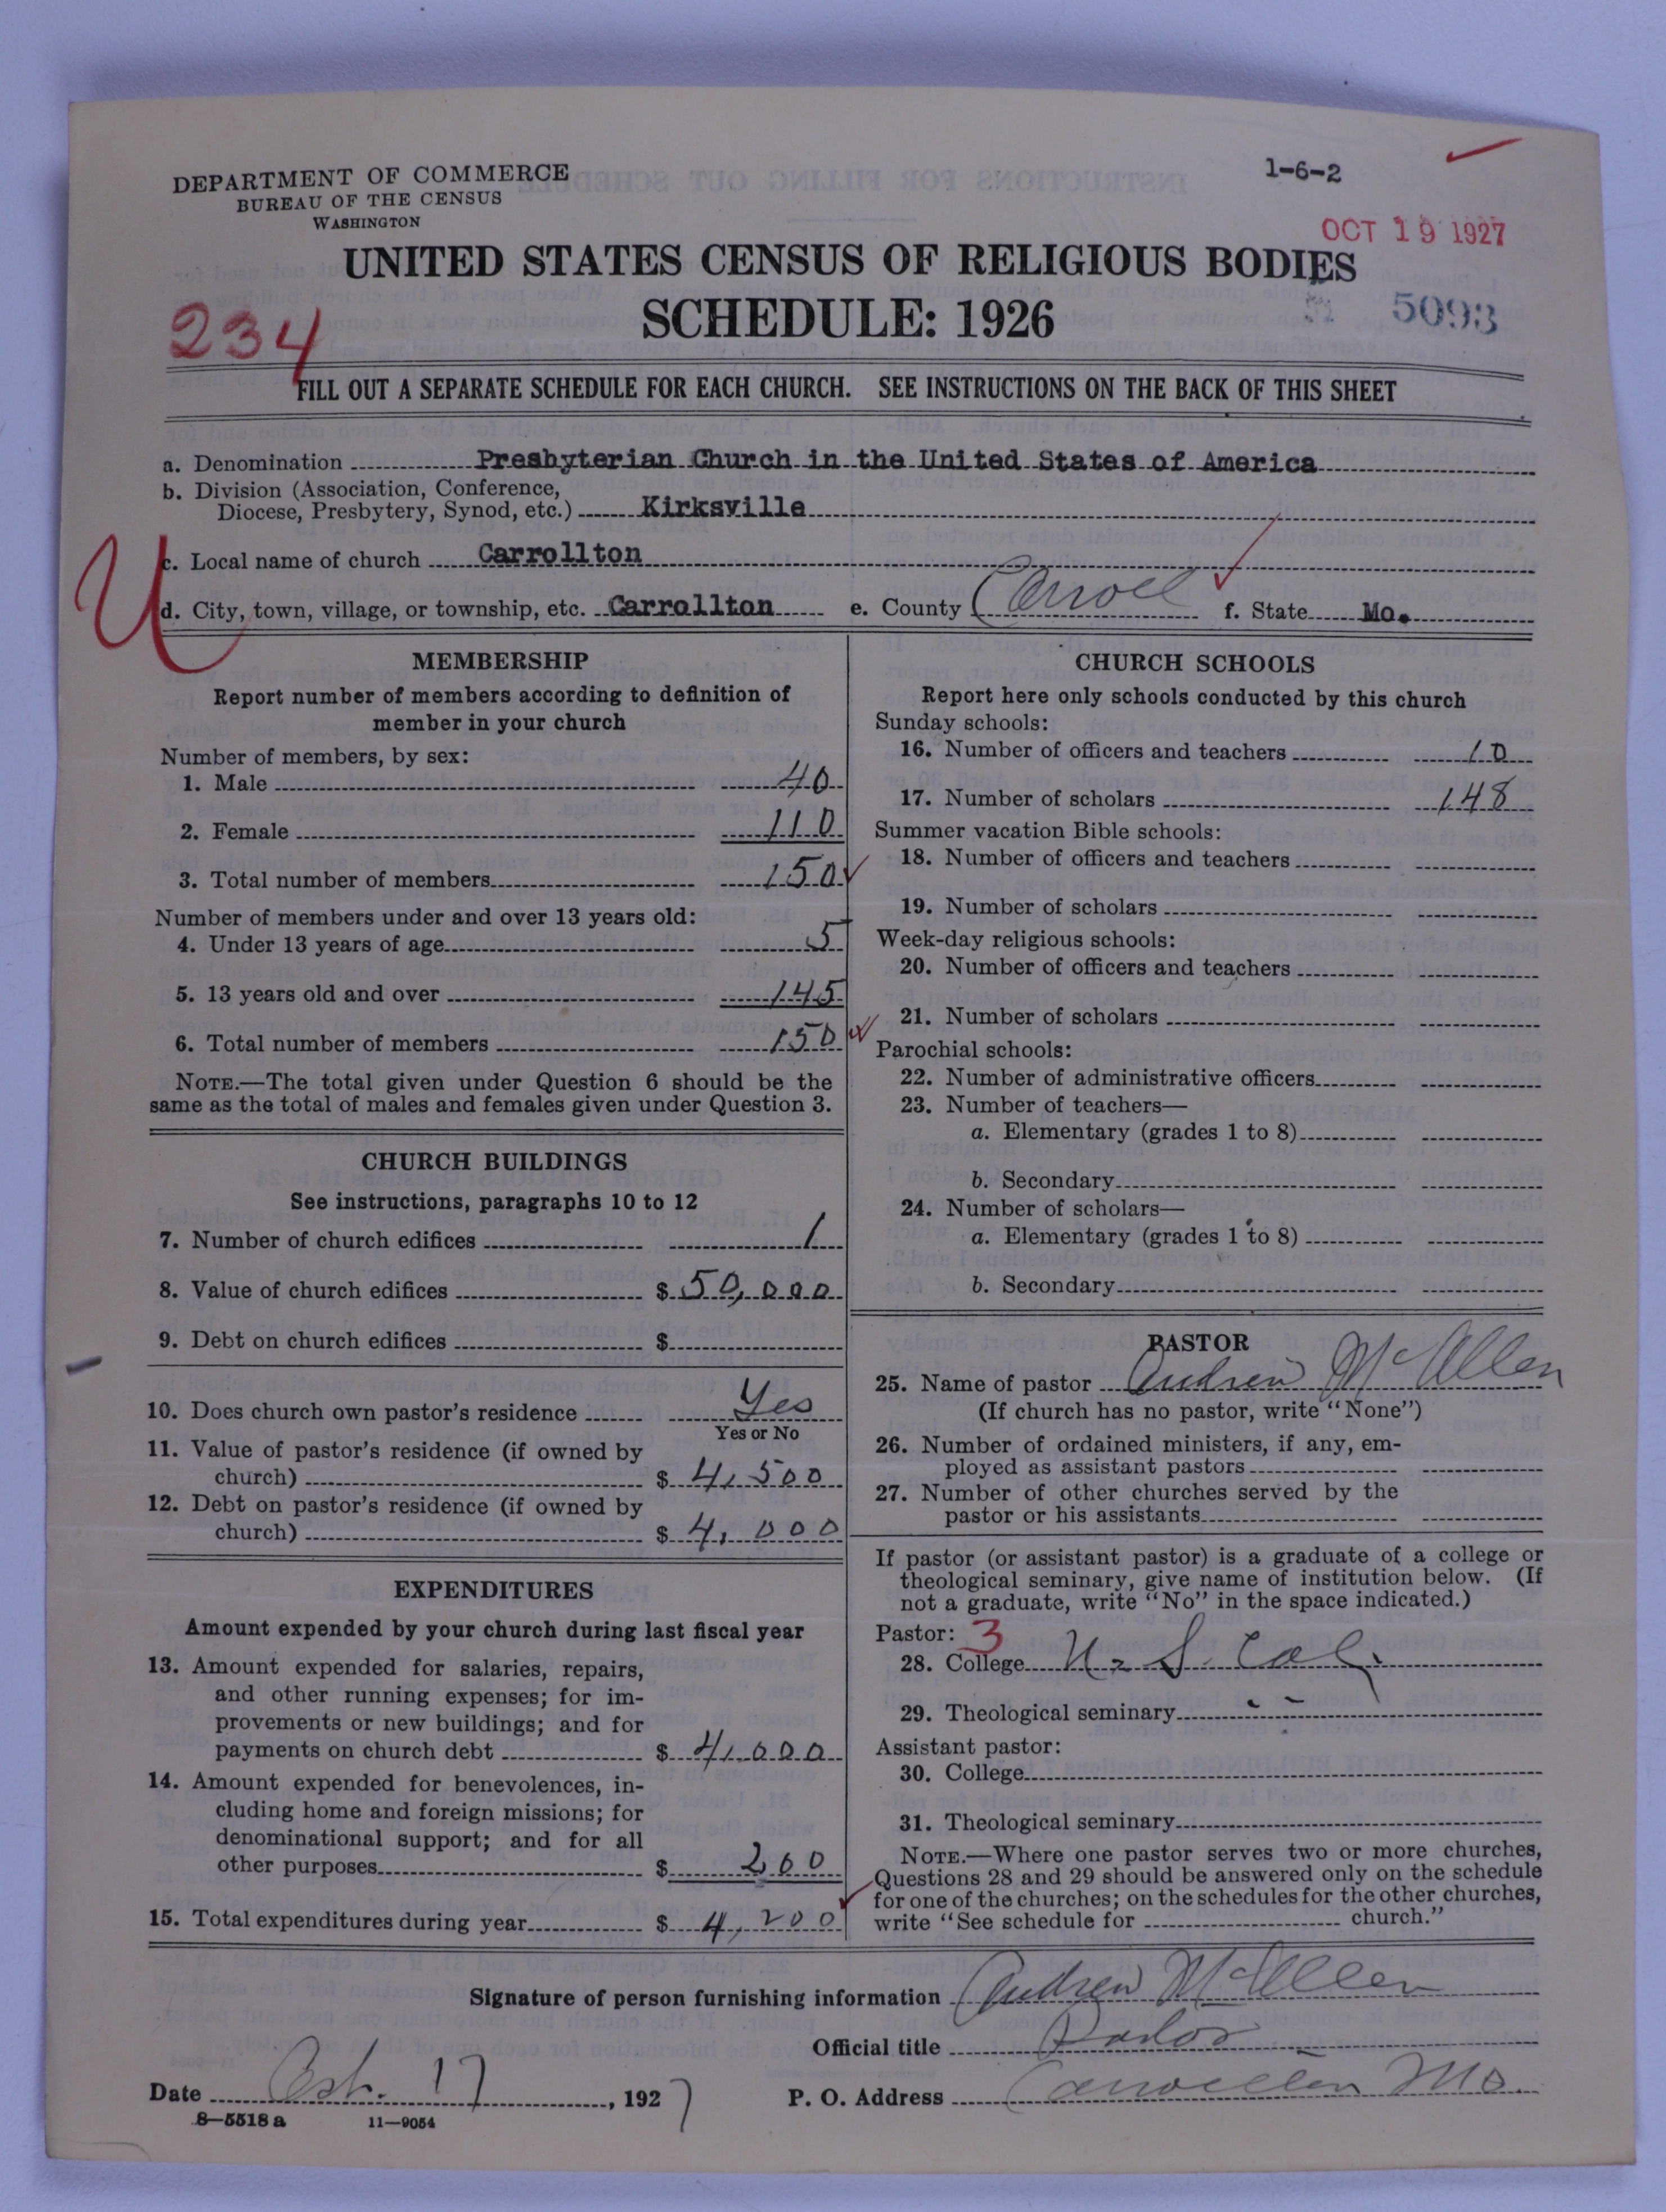 DEPARTMENT OF COMMERCE
BUREAU OF THE CENSUS
WASHINGTON
1-6-2
OCT 19 1927
UNITED STATES CENSUS OF RELIGIOUS BODIES
SCHEDULE: 1926
5093
234
FILL OUT A SEPARATE SCHEDULE FOR EACH CHURCH. SEE INSTRUCTIONS ON THE BACK OF THIS SHEET
a. Denomination Presbyterian Church in the United States of America
b. Division (Association, Conference,
Diocese, Presbytery, Synod, etc.) Kirksville
c. Local name of church Carrollton
U
d. City, town, village, or township, etc. Carrollton e. County Carroll f. State Mo.
MEMBERSHIP
Report number of members according to definition of
member in your church
Number of members, by sex:
1. Male 40
2. Female 110
3. Total number of members 150
Number of members under and over 13 years old:
4. Under 13 years of age 5
5. 13 years old and over 145
6. Total number of members 150
NOTE.—The total given under Question 6 should be the
same as the total of males and females given under Question 3.
CHURCH BUILDINGS
See instructions, paragraphs 10 to 12
7. Number of church edifices 1
8. Value of church edifices $ 50,000
9. Debt on church edifices $
10. Does church own pastor's residence Yes
Yes or No
11. Value of pastor's residence (if owned by
church) $ 4,500
12. Debt on pastor's residence (if owned by
church) $ 4,000
EXPENDITURES
Amount expended by your church during last fiscal year
13. Amount expended for salaries, repairs,
and other running expenses; for im-
provements or new buildings; and for
payments on church debt $ 4,000
14. Amount expended for benevolences, in-
cluding home and foreign missions; for
denominational support; and for all
other purposes $ 200
15. Total expenditures during year $ 4,200
CHURCH SCHOOLS
Report here only schools conducted by this church
Sunday schools:
16. Number of officers and teachers 10
17. Number of scholars 148
Summer vacation Bible schools:
18. Number of officers and teachers
19. Number of scholars
Week-day religious schools:
20. Number of officers and teachers
21. Number of scholars
Parochial schools:
22. Number of administrative officers
23. Number of teachers—
a. Elementary (grades 1 to 8)
b. Secondary
24. Number of scholars—
a. Elementary (grades 1 to 8)
b. Secondary
PASTOR
25. Name of pastor Andrew McAllen
(If church has no pastor, write "None")
26. Number of ordained ministers, if any, em-
ployed as assistant pastors
27. Number of other churches served by the
pastor or his assistants
If pastor (or assistant pastor) is a graduate of a college or
theological seminary, give name of institution below. (If
not a graduate, write "No" in the space indicated.)
Pastor: 3
28. College U. S. Col.
29. Theological seminary
Assistant pastor:
30. College
31. Theological seminary
NOTE.—Where one pastor serves two or more churches,
Questions 28 and 29 should be answered only on the schedule
for one of the churches; on the schedules for the other churches,
write "See schedule for church."
Signature of person furnishing information Andrew McAllen
Official title Pastor
Date Oct. 17, 1927 P. O. Address Carrollton Mo.
8—5518 a 11—9054